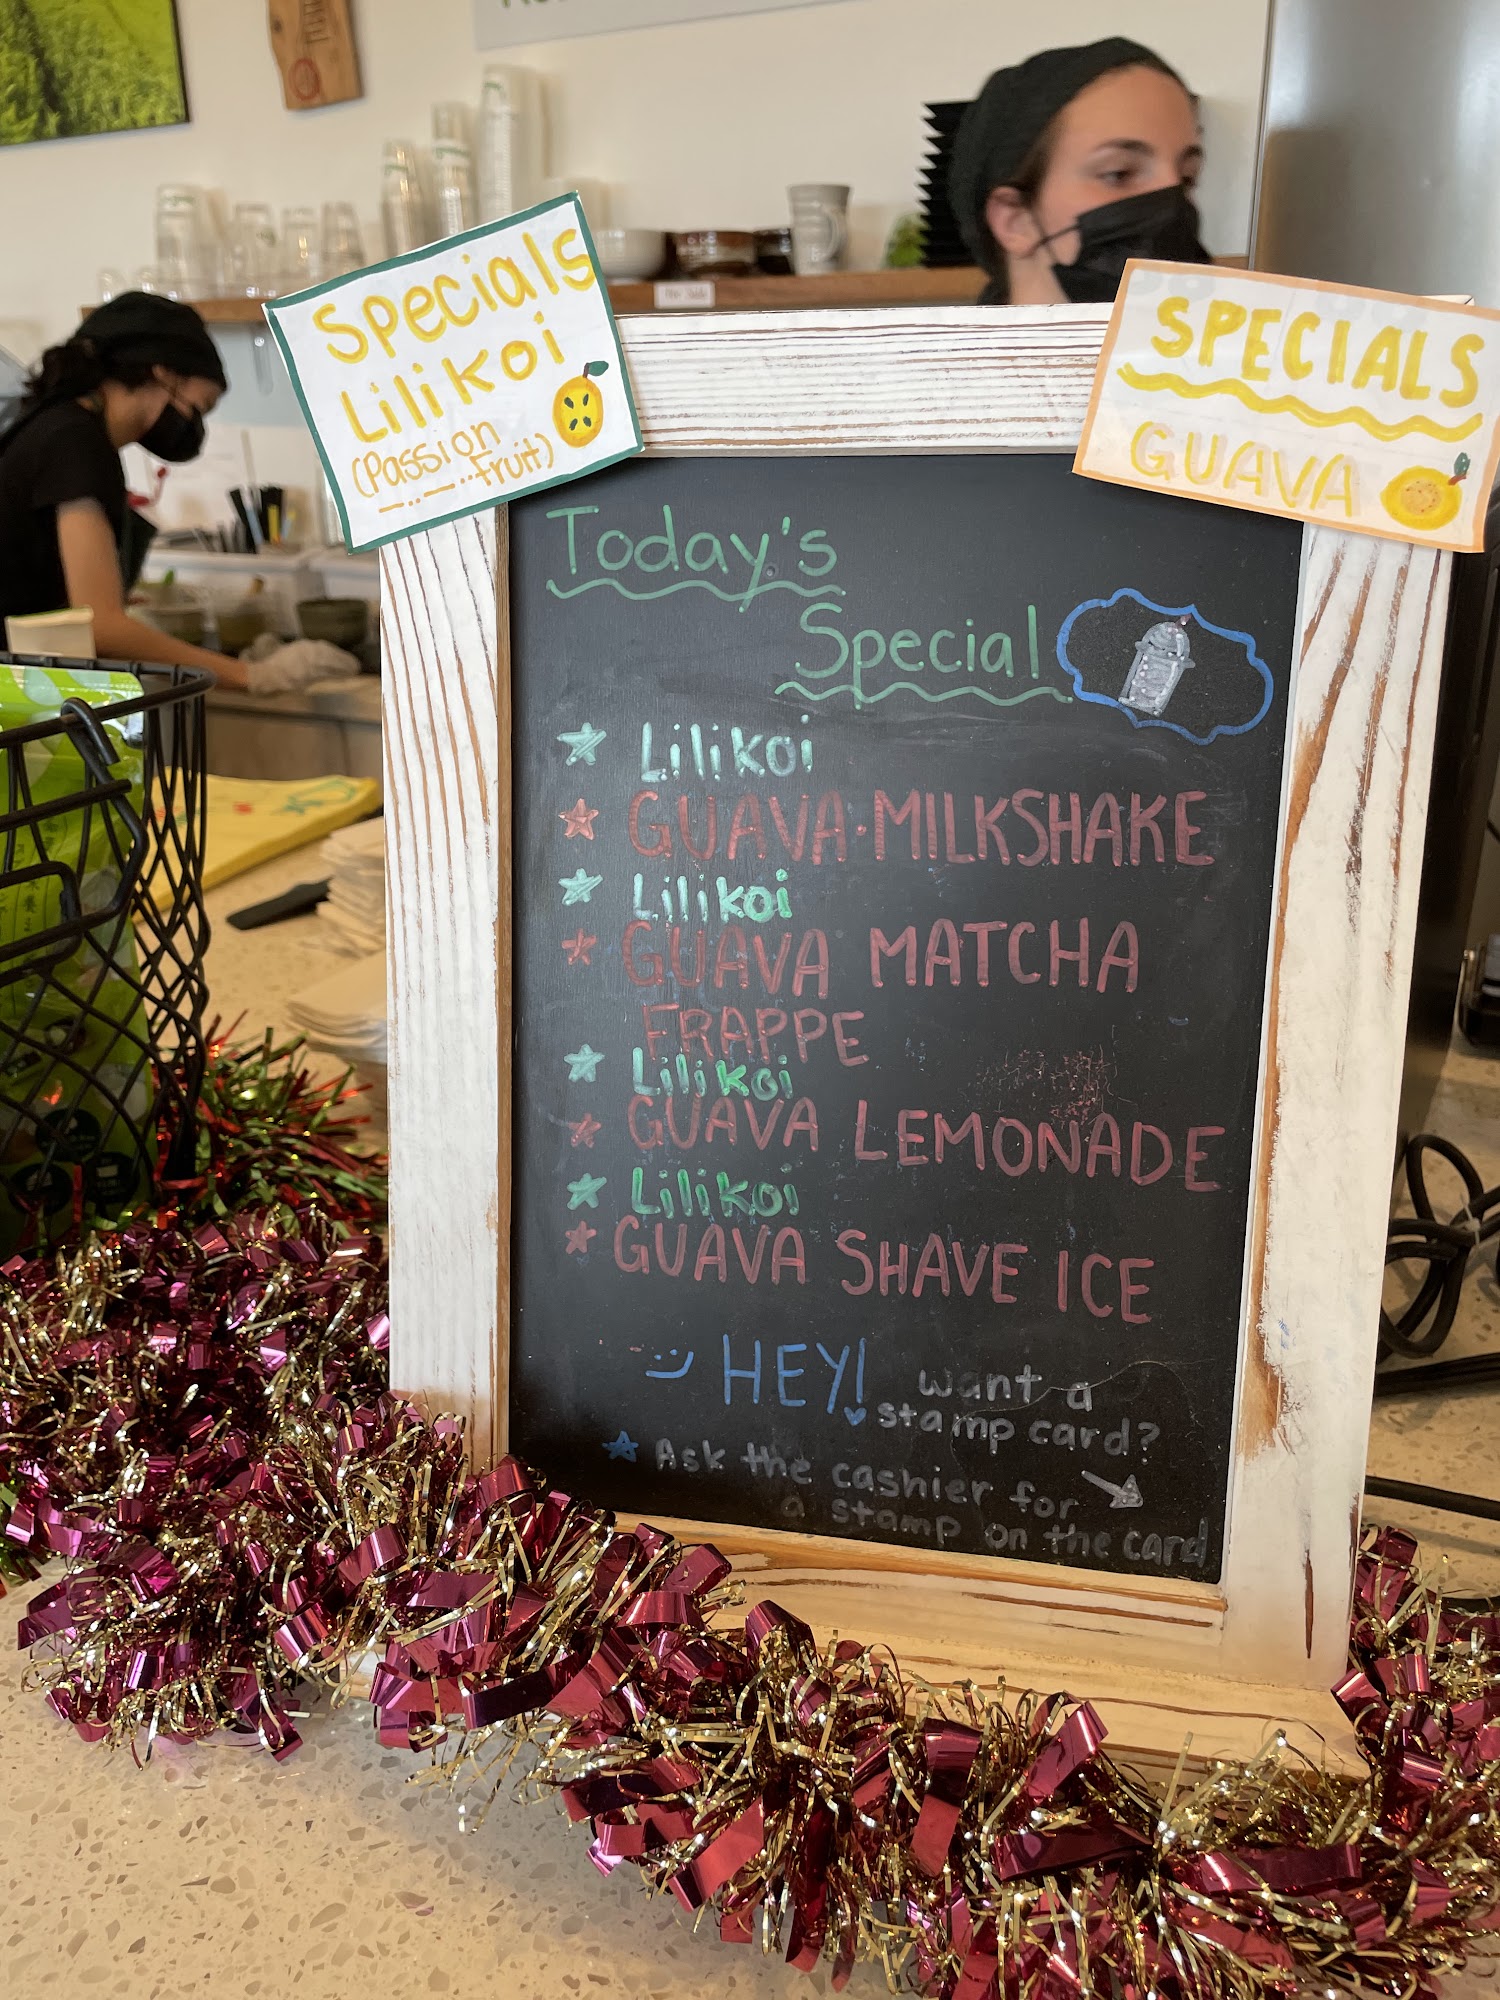 Specials
Lilikoi
(Passion
Fruit)
SPECIALS
GUAVA
Today's
Special
Lilikoi
GUAVA · MILKSHAKE
Lilikoi
GUAVA MATCHA
FRAPPE
Lilikoi
GUAVA LEMONADE
Lilikoi
GUAVA SHAVE ICE
HEY! want a
stamp card?
Ask the cashier for
a stamp on the card